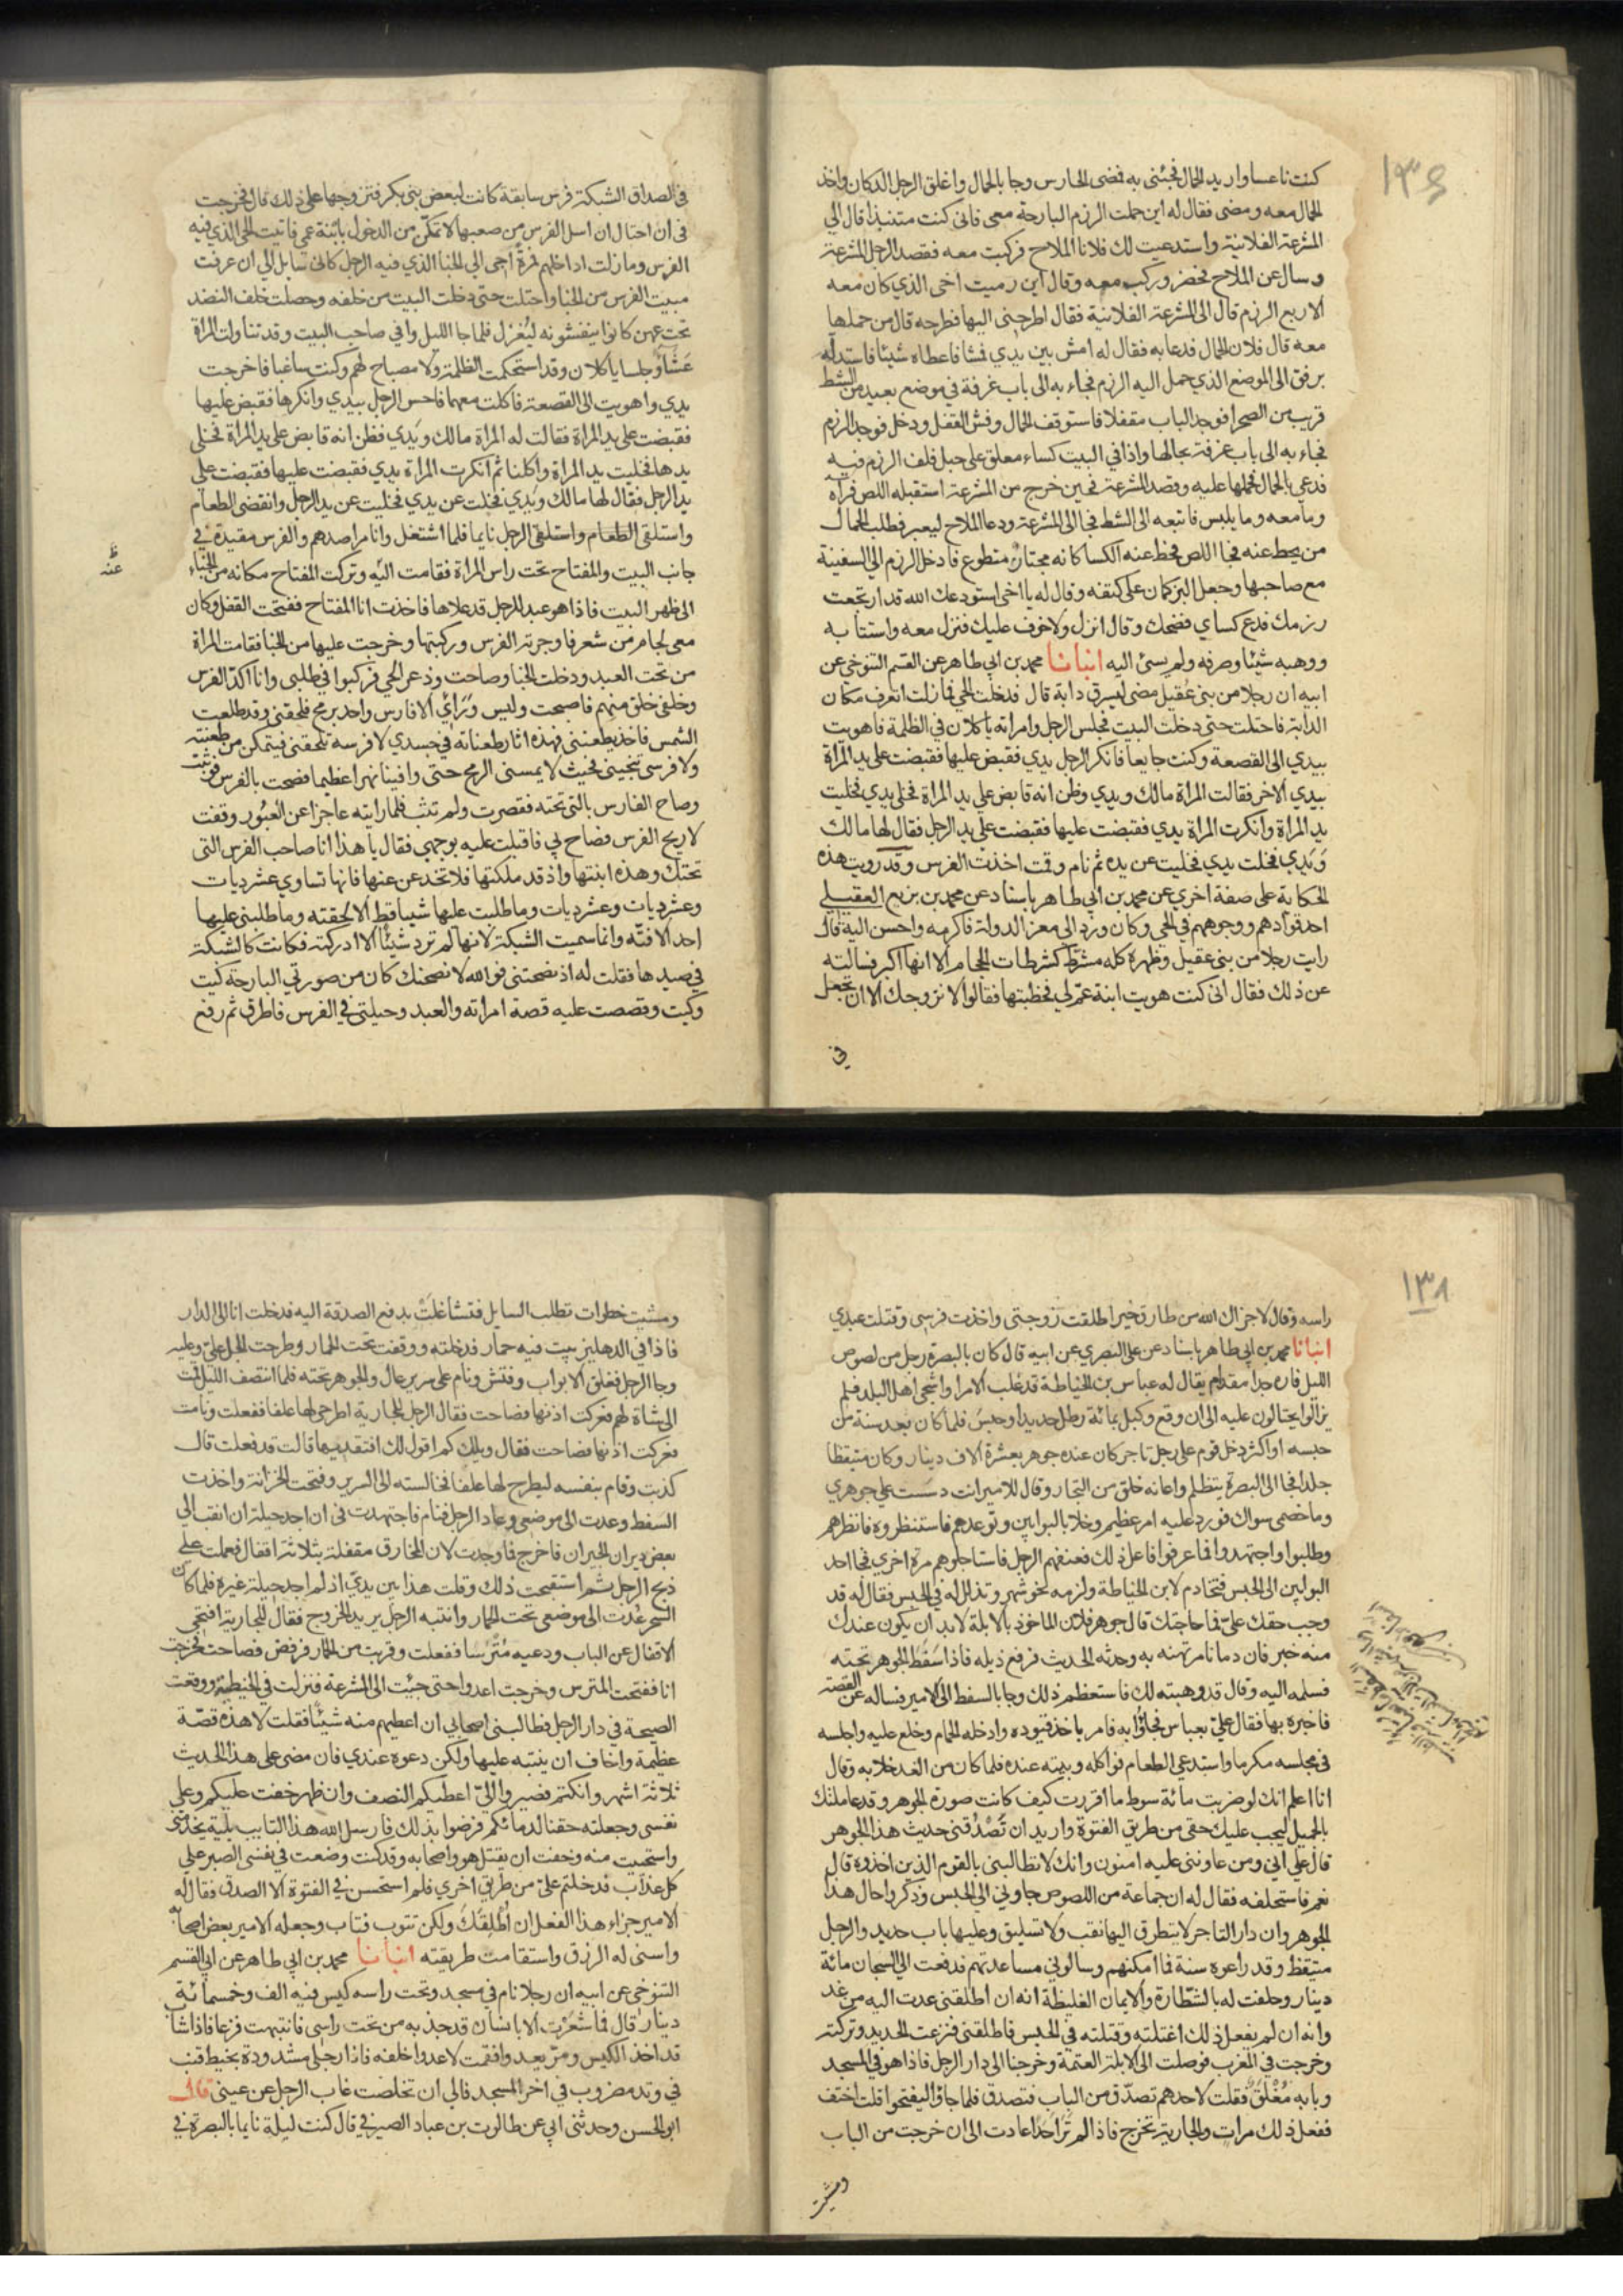 ١٣٦
كنت ناعسا واريد الحمال فجئنى به فمضى الحارس وجا بالحمال واغلق الرجل الدكان واخذ
الحمال معه ومضى فقال له اين حملت الرزم البارحة معى فانى كنت منتبذا قال الي
المشرعة الفلانية واستدعيت لك فلانا الملاح فركبت معه فقصد الرجل المشرعة
وسال عن الملاح فحضر وركب معه وقال اين رميت اخى الذي كان معه
الاربع الرزم قال الى المشرعة الفلانية فقال اطرحنى اليها فطرحه قال من حملها
معه قال فلان الحمال فدعا به فقال له امش بين يدي فمشا فاعطاه شيئا فاستدله
برفق الى الموضع الذي حمل اليه الرزم فجاء به الى باب غرفة في موضع بعيد من الشط
قريب من الصحرا فوجد الباب مقفلا فاستوقف الحمال وفش القفل ودخل فوجد الرزم
فجاء به الى باب غرفة بحالها واذا في البيت كساء معلق على حبل فلف الرزم فيه
فدعي بالحمال فحملها عليه وقصد المشرعة فحين خرج من المشرعة استقبله اللص فرآه
وما معه وما يلبس فاتبعه الى الشط فجا الى المشرعة ودعا الملاح ليعبر فطلب الحمال
من يحط عنه فجا اللص فحط عنه الكسا كانه مجتاز متطوع فادخل الرزم الي السفينة
مع صاحبها وجعل البركان على كتفه وقال له يا اخى استودعك الله قد ارتجعت
رزمك فدع كساي فضحك وقال انزل ولا خوف عليك فنزل معه واستتابه
ووهبه شيئا وصرفه ولم يسئ اليه انبانا محمد بن ابي طاهر عن القسم التنوخي عن
ابيه ان رجلا من بنى عُقيل مضى ليسرق دابة قال فدخلت الحي فما زلت اتعرف مكان
الدابة فاحتلت حتى دخلت البيت فجلس الرجل وامراته ياكلان في الظلمة فاهويت
بيدي الى القصعة وكنت جايعا فانكر الرجل يدي فقبض عليها فقبضت على يد المرأة
بيدي الاخر فقالت المراة مالك ويدي وظن انه قابض علي يد المراة فخلى يدي فخليت
يد المراة وانكرت المراة يدي فقبضت عليها فقبضت علي يد الرجل فقال لها مالك
وَيَدي فخلت يدي فخليت عن يده ثم نام وقمت اخذت الفرس وقد رويت هذه
الحكاية على صفة اخري عن محمد بن ابي طاهر باسناد عن محمد بن بزيع العقيلي
احد قوادهم ووجوههم في الحي وكان ورد الى معز الدولة فاكرمه واحسن اليه قال
رايت رجلا من بنى عقيل وظهره كله مشرَّط كشرطات الحجام الا انها اكبر فسالته
عن ذلك فقال انى كنت هويت ابنة عمّ لي فخطبتها فقالوا لا نزوجك الا ان تجعل
في
في الصداق الشبكة فرس سابقة كانت لبعض بنى بكر فتزوجها على ذلك قال فخرجت
في ان احتال ان اسل الفرس من صعبها لاتمكّن من الدخول بابنة عمي فاتيت الحي الذي فيه
الفرس وما زلت اداخلهم فمرةً اجى الي الخبا الذي فيه الرجل كانى سايل الي ان عرفت
مبيت الفرس من الخبا واحتلت حتى دخلت البيت من خلفه وحصلت خلف النضد
تحت عهن كانوا ينفشونه ليُغزل فلما جا الليل وافي صاحب البيت وقد تناولت المراة
عَشَاءً وجلسا ياكلان وقد استحكمت الظلمة ولا مصباح لهم وكنت ساغبا فاخرجت
يدي واهويت الى القصعة فاكلت معهما فاحس الرجل بيدي وانكرها فقبض عليها
فقبضت على يد المراة فقالت له المراة مالك ويَدي فظن انه قابض على يد المراة فخلى
يدها فخليت يد المراة واكلنا ثم انكرت المراة يدي فقبضت عليها فقبضت على
يد الرجل فقال لها مالك ويَدي فخلت عن يدي فخليت عن يد الرجل وانقضى الطعام
واستلقى الطعام واستلقى الرجل نايما فلما اشتغل وانا مراصدهم والفرس مقيدة في
جانب البيت والمفتاح تحت راس المراة فقامت اليه وتركت المفتاح مكانه من الخباء
الى ظهر البيت فاذا هو عبد للرجل قد علاها فاخذت انا المفتاح ففتحت القفل وكان
معى لجام من شعر فاوجرته الفرس وركبتها وخرجت عليها من الخبا فقامت المراة
من تحت العبد ودخلت الخبا وصاحت وذعر الحي فركبوا في طلبى وانا اكدّ الفرس
وخلفي خلق منهم فاصبحت وليس وَرَائي الا فارس واحد برمح فلحقنى وقد طلعت
الشمس فاخذ يطعننى فهذه اثار طعناته في جسدي لا فرسه تلحقنى فيتمكن من طعنته
ولا فرسى تنجينى بحيث لا يمسنى الرمح حتى وافينا نهرا عظيما فصحت بالفرس فوثبت
وصاح الفارس بالتى تحته فقصرت ولم تثب فلما رايته عاجزا عن العبُور وقفت
لاريح الفرس فصاح بي فاقبلت عليه بوجهي فقال يا هذا انا صاحب الفرس التى
تحتك وهذه ابنتها واذ قد ملكتها فلا تخدعن عنها فانها تساوي عشر ديات
وعشر ديات وعشر ديات وما طلبت عليها شيا قط الا لحقته وما طلبنى عليها
احد الا فتّه وانما سميت الشبكة لانها لم ترد شيئا الا ادركته فكانت كالشبكة
في صيدها فقلت له اذ نصحتنى فوالله لانصحنك كان من صورتي البارحة كيت
وكيت وقصصت عليه قصة امراته والعبد وحيلتى في الفرس فاطرق ثم رفع
ظ
عنه
١٣٨
راسه وقال لا جزاك الله من طارق خيرا طلقت زوجتى واخذت فرسى وقتلت عبدي
انبانا محمد بن ابي طاهر باسناد عن على البصري عن ابيه قال كان بالبصرة رجل من لصوص
الليل فاره جدا مقدام يقال له عباس بن الخياطة قد غلب الامرا واشجى اهل البلد فلم
يزالوا يحتالون عليه الى ان وقع وكبل بمائة رطل حديدا وحبسَ فلما كان بعد سنة من
حبسه او اكثر دخل قوم على رجل تاجر كان عنده جوهر بعشرة الاف دينار وكان متيقظا
جلدا فجا الى البصرة يتظلم واعانه خلق من التجار وقال للامير انت دسَست علي جوهري
وما خصمى سواك فورد عليه امر عظيم وخلا بالبوابين وتوعدهم فاستنظروه فانظرهم
وطلبوا واجتهدوا فما عرفوا فاعل ذلك فعنفهم الرجل فاستاجلوهم مرة اخري فجا احد
البوابين الى الحبس فتخادم لابن الخياطة ولزمه نحو شهر وتذلل له في الحبس فقال له قد
وجب حقك علىّ فما حاجتك قال جوهر فلان الماخوذ بالابلة لا بد ان يكون عندك
منه خبر فان دمانا مرتهنه به وحدثه الحديث فرفع ذيله فاذا سَفَط الجوهر تحته
فسلمه اليه وقال قد وهبته لك فاستعظم ذلك وجا بالسفط الى الامير فساله عن القصة
فاخبره بها فقال عليّ بعباس فجاؤا به فامر باخذ قيوده وادخله الحمام وخلع عليه واجلسه
في مجلسه مكرما واستدعي الطعام فواكله وبيته عنده فلما كان من الغد خلا به وقال
انا اعلم انك لو ضربت مائة سوط ما اقررت كيف كانت صورة الجوهر وقد عاملتك
بالجميل ليجب عليك حقى من طريق الفتوة واريد ان تَصْدُقنى حديث هذا الجوهر
قال على انى ومن عاوننى عليه امنون وانك لا تطالبنى بالقوم الذين اخذوه قال
نعم فاستحلفه فقال له ان جماعة من اللصوص جاوني الى الحبس وذكروا حال هذا
الجوهر وان دار التاجر لا يتطرق اليها نقب ولا تسليق وعليها باب حديد والرجل
متيقظ وقد راعوه سنة فما امكنهم وسالوني مساعدتهم فدفعت الي السجان مائة
دينار وحلفت له بالشطارة والايمان الغليظة انه ان اطلقنى عدت اليه من غد
وانه ان لم يفعل ذلك اغتلته وقتلته في الحبس فاطلقنى فنزعت الحديد وتركته
وخرجت في المغرب فوصلت الى الابلة العتمة وخرجنا الى دار الرجل فاذا هو في المسجد
وبابه مُغْلَقٌ فقلت لاحدهم تصدّق من الباب فتصدق فلما جاؤا ليفتحوا قلت اختف
ففعل ذلك مرات والجارية تخرج فاذا لم تَرَ احدا عادت الى ان خرجت من الباب
ومشيت
ومشيت خطوات تطلب السايل فتشاغلَتْ بدفع الصدقة اليه فدخلت انا الى الدار
فاذا في الدهليز بيت فيه حمار فدخلته ووقفت تحت الحمار وطرحت الجل علىّ وعليه
وجا الرجل فغلق الابواب وفتش ونام على سرير عال والجوهر تحته فلما انتصف الليل قمت
الى شاة لهم فعركت اذنها فصاحت فقال الرجل للجارية اطرحى لها علفا ففعلت ونامت
فعركت اذنها فصاحت فقال ويلك كم اقول لك افتقديها قالت قد فعلت قال
كذبت وقام بنفسه ليطرح لها علفا فخالسته الى السرير وفتحت الخزانة واخذت
السفط وعدت الى موضعى وعاد الرجل فنام فاجتهدت فى ان اجد حيلة ان انقب الى
بعض ديران الجيران فاخرج فما وجدت لان المخارق مقفلة بثلاثة اقفال فعملت على
ذبح الرجل ثم استقبحت ذلك وقلت هذا بين يديّ اذ لم اجد حيلة غيره فلما كان
السحر عُدت الى موضعى تحت الحمار وانتبه الرجل يريد الخروج فقال للجارية افتحى
الاقفال عن الباب ودعيه مُتَرَّسا ففعلت وقربت من الحمار فرفض فصاحت فخرجت
انا ففتحت المترس وخرجت اعدوا حتى جئت الى المشرعة فنزلت في الخيطية ووقعت
الصيحة في دار الرجل فطالبنى اصحابي ان اعطيهم منه شيئًا فقلت لا هذه قصّة
عظيمة واخاف ان ينتبه عليها ولكن دعوه عندي فان مضى على هذا الحديث
ثلاثة اشهر وانكتم فصيروا اليّ اعطيكم النصف وان ظهر خفت عليكم وعلى
نفسى وجعلته حقنا لدمائكم فرضوا بذلك فارسل الله هذا التايب بلية يخدمنى
واستحييت منه وخفت ان يقتل هو واصحابه وقد كنت وضعت في نفسى الصبر على
كل عذاب فدخلتم علىّ من طريق اخري فلم استحسن في الفتوة الا الصدق فقال له
الامير جزاء هذا الفعل ان اُطْلِقَكَ ولكن تتوب فتاب وجعله الامير بعض اصحابه
واسنى له الرزق واستقامت طريقته انبانا محمد بن ابي طاهر عن ابي القسم
التنوخي عن ابيه ان رجلا نام في مسجد وتحت راسه كيس فيه الف وخمسمائة
دينار قال فما شَعَرْتُ الا بانسان قد جذبه من تحت راسى فانتبهت فزعا فاذا شاب
قد اخذ الكيس ومرّ يعدوا فقمت لاعدوا خلفه فاذا رجلى مشدودة بخيط قنب
في وتد مضروب في اخر المسجد فالى ان تخلصت غاب الرجل عن عينى قال
ابو الحسن وحدثنى ابي عن طالوت بن عباد الصيرفي قال كنت ليلة نايما بالبصرة في